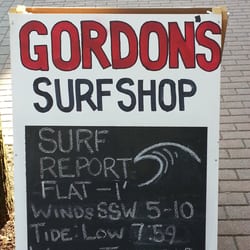 GORDON'S
SURF SHOP
SURF
REPORT
FLAT - 1'
WINDS SSW 5-10
TIDE: LOW 7:59